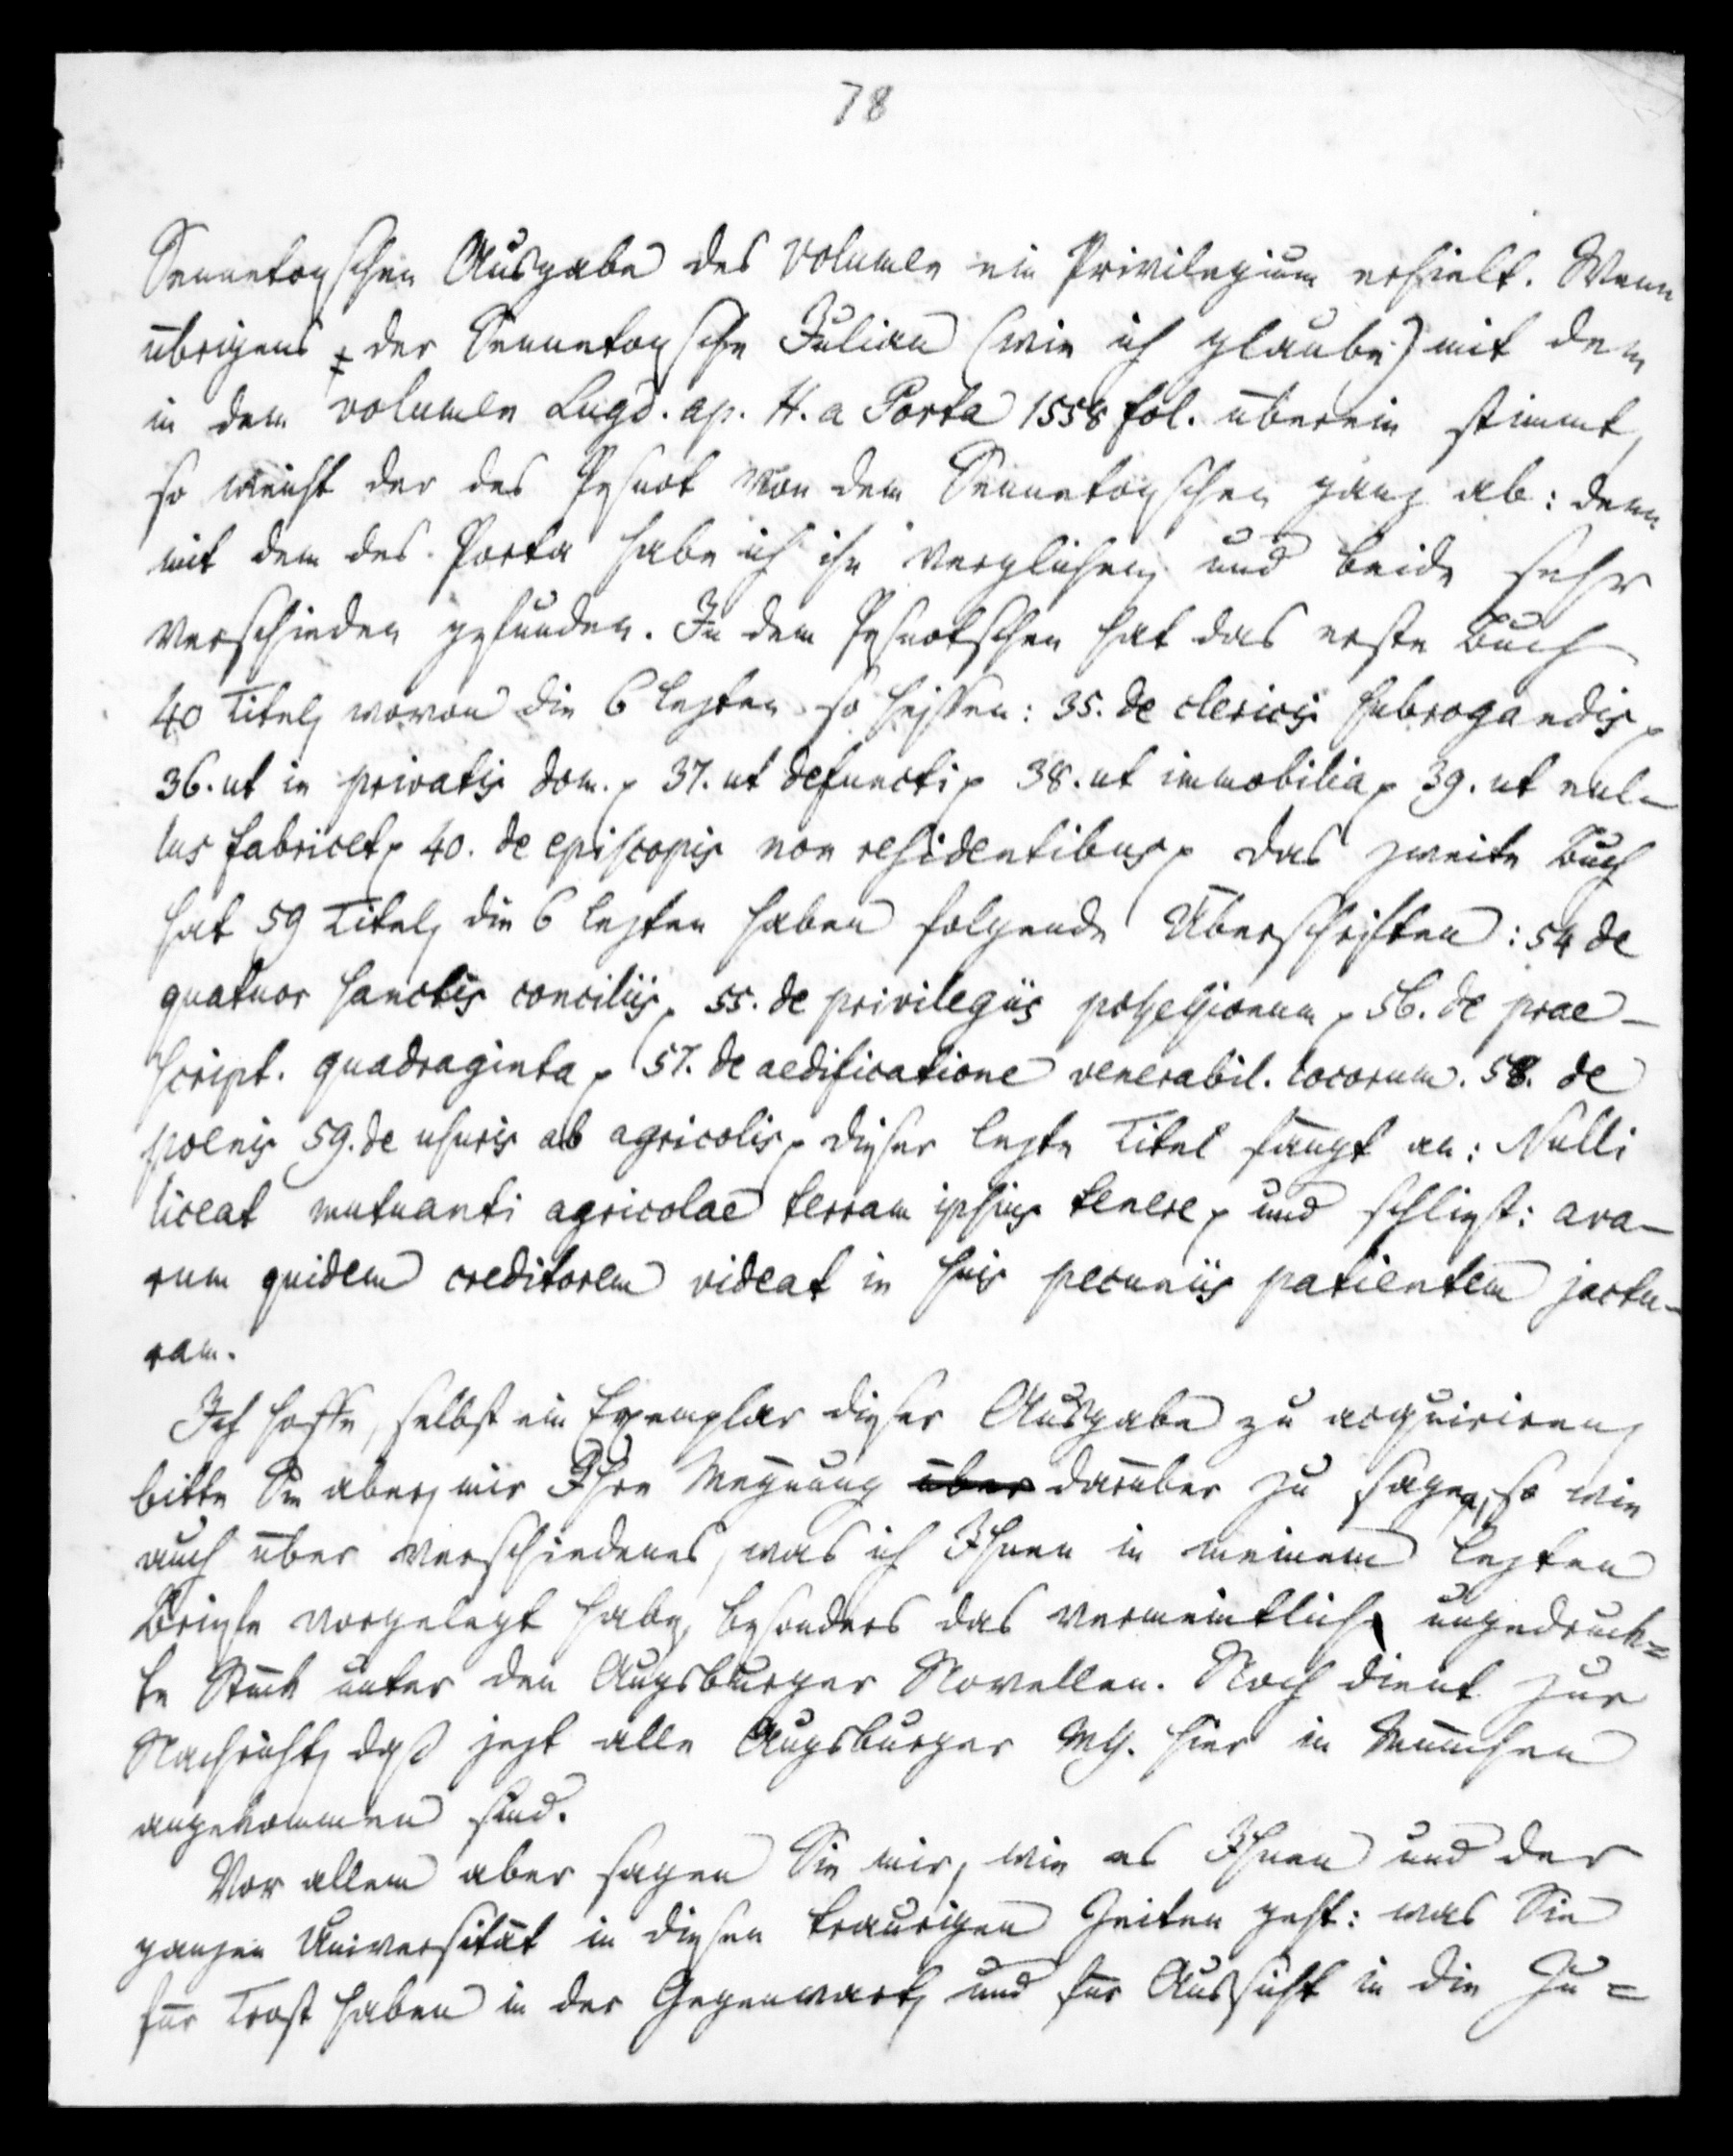 78
Sennetonschen Ausgabe des volumen ein Privilegium erhielt. Wenn
übrigens der Sennetonsche Julian (wie ich glaube) mit dem
in dem volumen Lugd. ap. H. a Porta 1558 fol. überein stimmt,
so weicht der des Pesnot von dem Sennetonschen ganz ab: denn
mit dem des Porta habe ich ihn verglichen, und beide sehr
verschieden gefunden. In dem Pesnotschen hat das erste Buch
40 Titel, wovon die 6 lezten so heissen: 35. de clericis subrogandis
36. ut in privatis dom. 37. ut defuncti 38. ut immobilia 39. ut nul-
lus fabricet 40. de episcopis non residentibus das zweite Buch
hat 59 Titel, die 6 lezten haben folgende Überschriften: 54 de
quatuor sanctis conciliis 55. de privilegiis possessionum 56. de prae-
script. quadraginta 57. de aedificatione venerabil. locorum. 58. de
poenis 59. de usuris ab agricolis dieser lezte Titel fängt an: Nulli
liceat mutuanti agricolae terram ipsius tenere und schliest: ava-
rum quidem creditorem videat in suis pecuniis patientem jactu-
ram.
Ich hoffe, selbst ein Exemplar dieser Ausgabe zu acquiriren,
bitte Sie aber, mir Ihre Meynung über darüber zu sagen, so wie
auch über verschiedenes, was ich Ihnen in meinem lezten
Briefe vorgelegt habe, besonders das vermeintliche ungedruck=
te Stück unter den Augsburger Novellen. Noch dient zur
Nachricht, daß jezt alle Augsburger MSS. hier in München
angekommen sind.
Vor allem aber sagen Sie mir, wie es Ihnen und der
ganzen Universität in diesen traurigen Zeiten geht: was Sie
für Trost haben in der Gegenwart, und für Aussicht in die Zu=